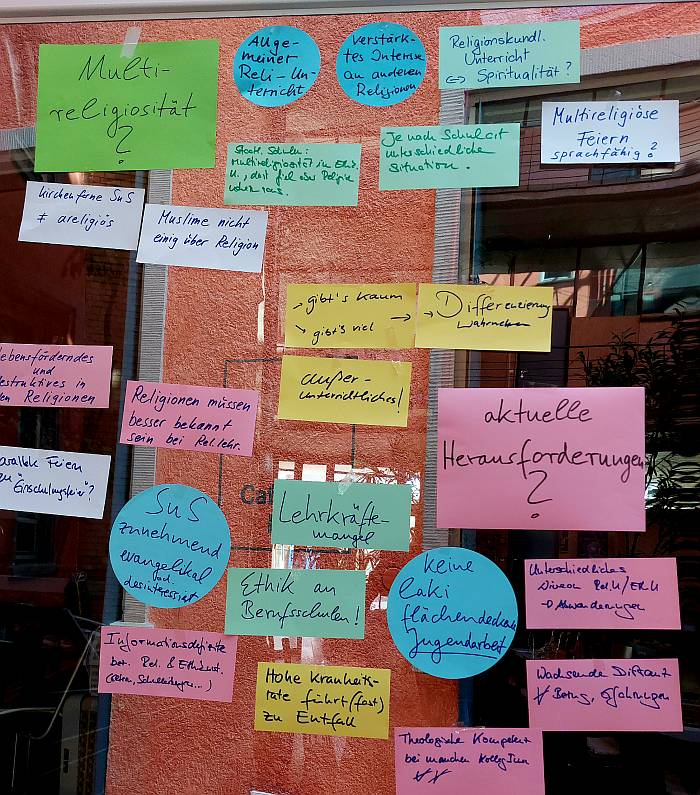 Multi-
religiosität
?
Allge-
meiner
Reli-Un-
terricht
Verstärk-
tes Interesse
an anderen
Religionen
Religionskundl.
Unterricht
<=> Spiritualität?
Multireligiöse
Feiern
sprachfähig?
Staatl. Schulen:
Multireligiosität in Eth.
U., dort
Je nach Schulart
unterschiedliche
Situation.
kirchenferne SuS
≠ areligiös
Muslime nicht
einig über Religion
→ gibt's kaum
↘ gibt's viel →
→ Differenzierung
wahrnehmen
außer-
unterrichtliches!
ebensförderndes
und
estruktives in
den Religionen
Religionen müssen
besser bekannt
sein bei Rel.lehr.
aktuelle
Herausforderungen
?
arallele Feiern
zu "Einschulungsfeier"?
SuS
zunehmend
evangelikal
bzd.
desinteressiert
Lehrkräfte-
mangel
Ca
Ethik an
Berufsschulen!
keine
laki
flächendeckende
Jugendarbeit
Unterschiedliches
Niveau Rel.U/Eth.U
→ Abwanderungen
Informationsdefizite
bzt. Rel. & Ethikunt.
(Eltern, Schulleitungen...)
Hohe Krankheits-
rate führt (fast)
zu Entfall
Wachsende Distanz
Bezug, Erfahrungen
Theologische Kompetenz
bei manchen KollegInn